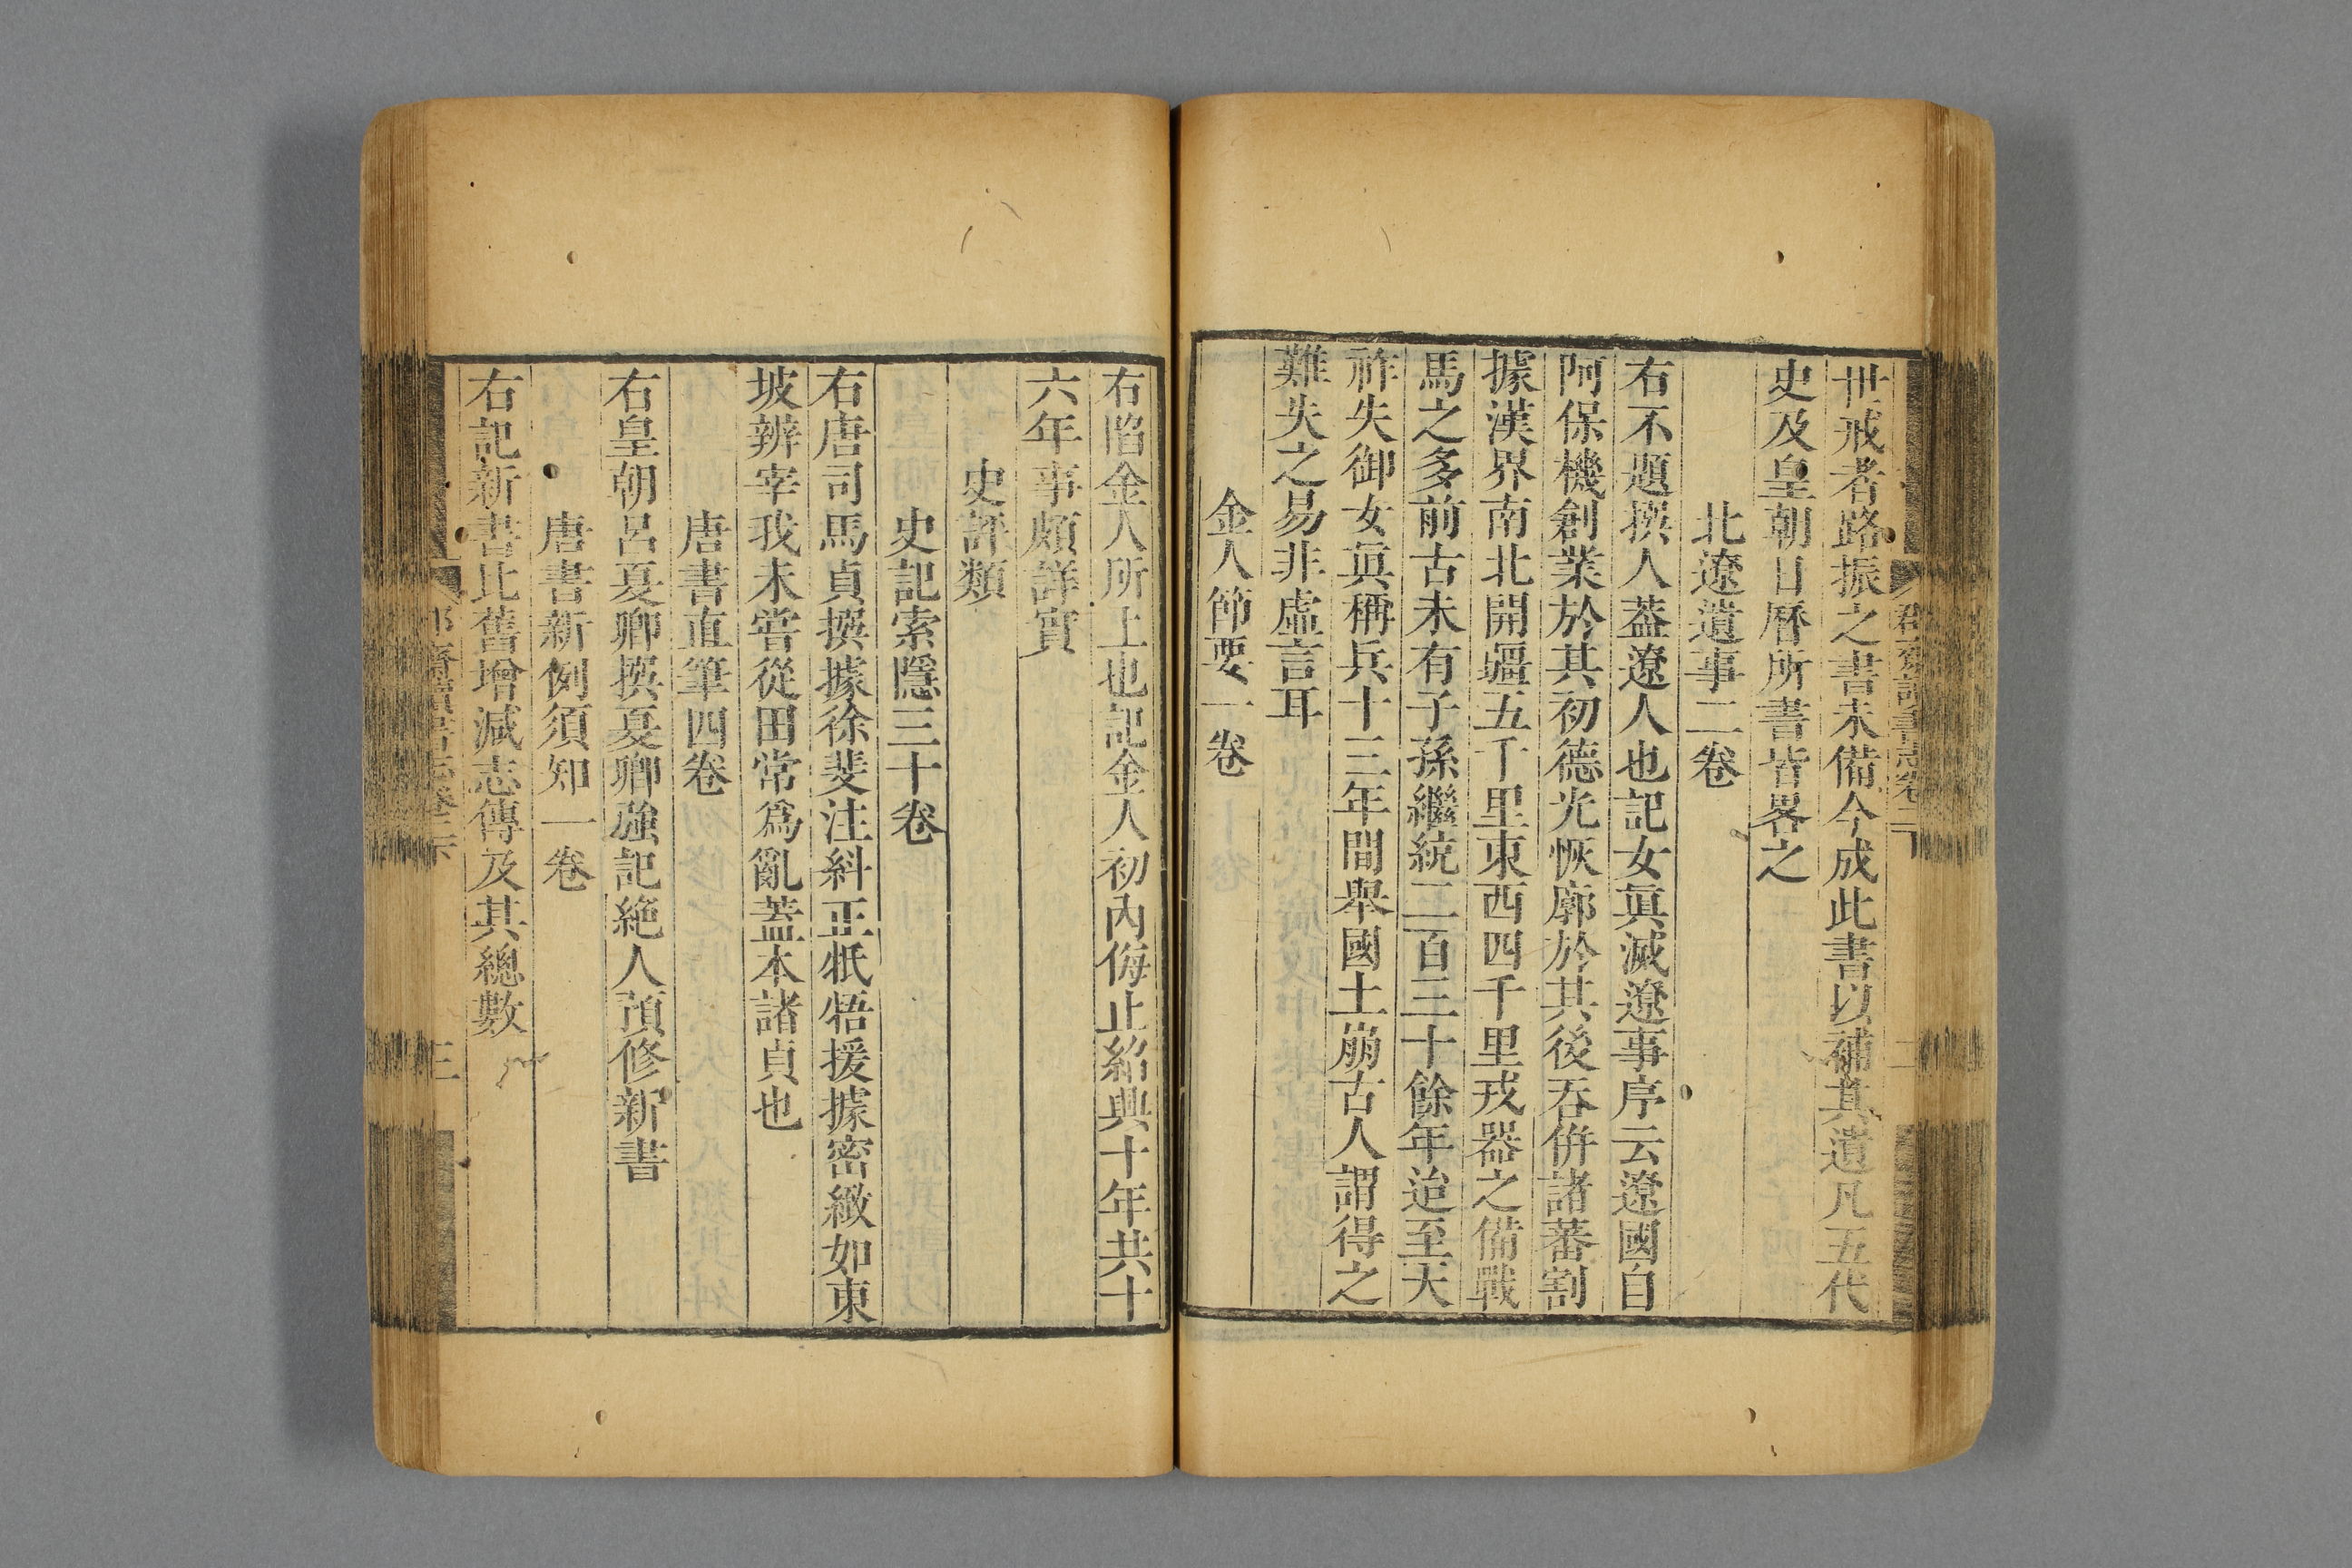 世戒者路振之書未備今成此書以補其遺凡五代
史及皇朝日曆所書皆畧之
北遼遺事二卷
右不題撰人葢遼人也記女眞滅遼事序云遼國自
阿保機創業於其初德光恢廓於其後吞併諸蕃割
據漢界南北開疆五千里東西四千里戎器之備戰
馬之多前古未有子孫繼統二百三十餘年迨至天
祚失御女眞稱兵十三年間舉國土崩古人謂得之
難失之易非虛言耳
金人節要一卷
右陷金人所上也記金人初內侮止紹興十年共十
六年事頗詳實
史評類
史記索隱三十卷
右唐司馬貞撰據徐斐注糾正牴牾援據密緻如東
坡辨宰我未嘗從田常爲亂蓋本諸貞也
唐書直筆四卷
右皇朝呂夏卿撰夏卿強記絶人預修新書
唐書新例須知一卷
右記新書比舊增減志傳及其總數
三